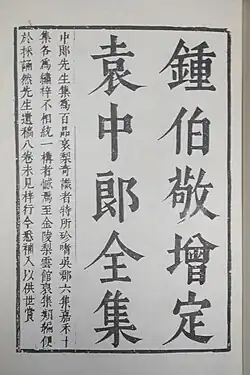 鍾伯敬增定
袁中郎全集
中郎先生集為百品哀梨奇識者特所珍嗜吳郡六集嘉禾十
集各為繡梓不相統一購者憾焉至金陵梨雲館裒集類編便
於採誦然先生遺稿八卷未見梓行今悉補入以供世賞